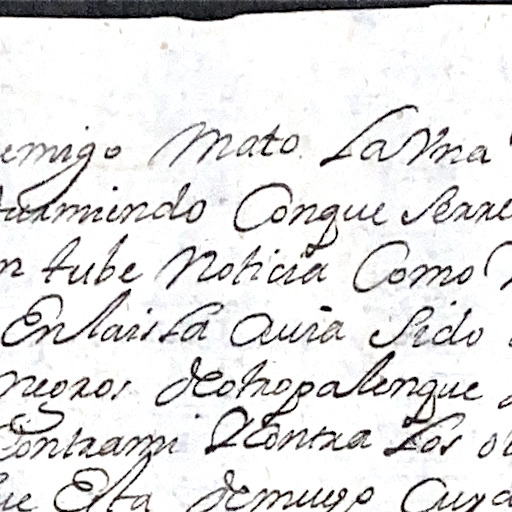 emigo mato la una
durmiendo Conque Serre
n tube noticia Como
En la isla auia sido
negros de otro palenque
Contrami Y Contra los o
ue Esta de mugo Cuyd